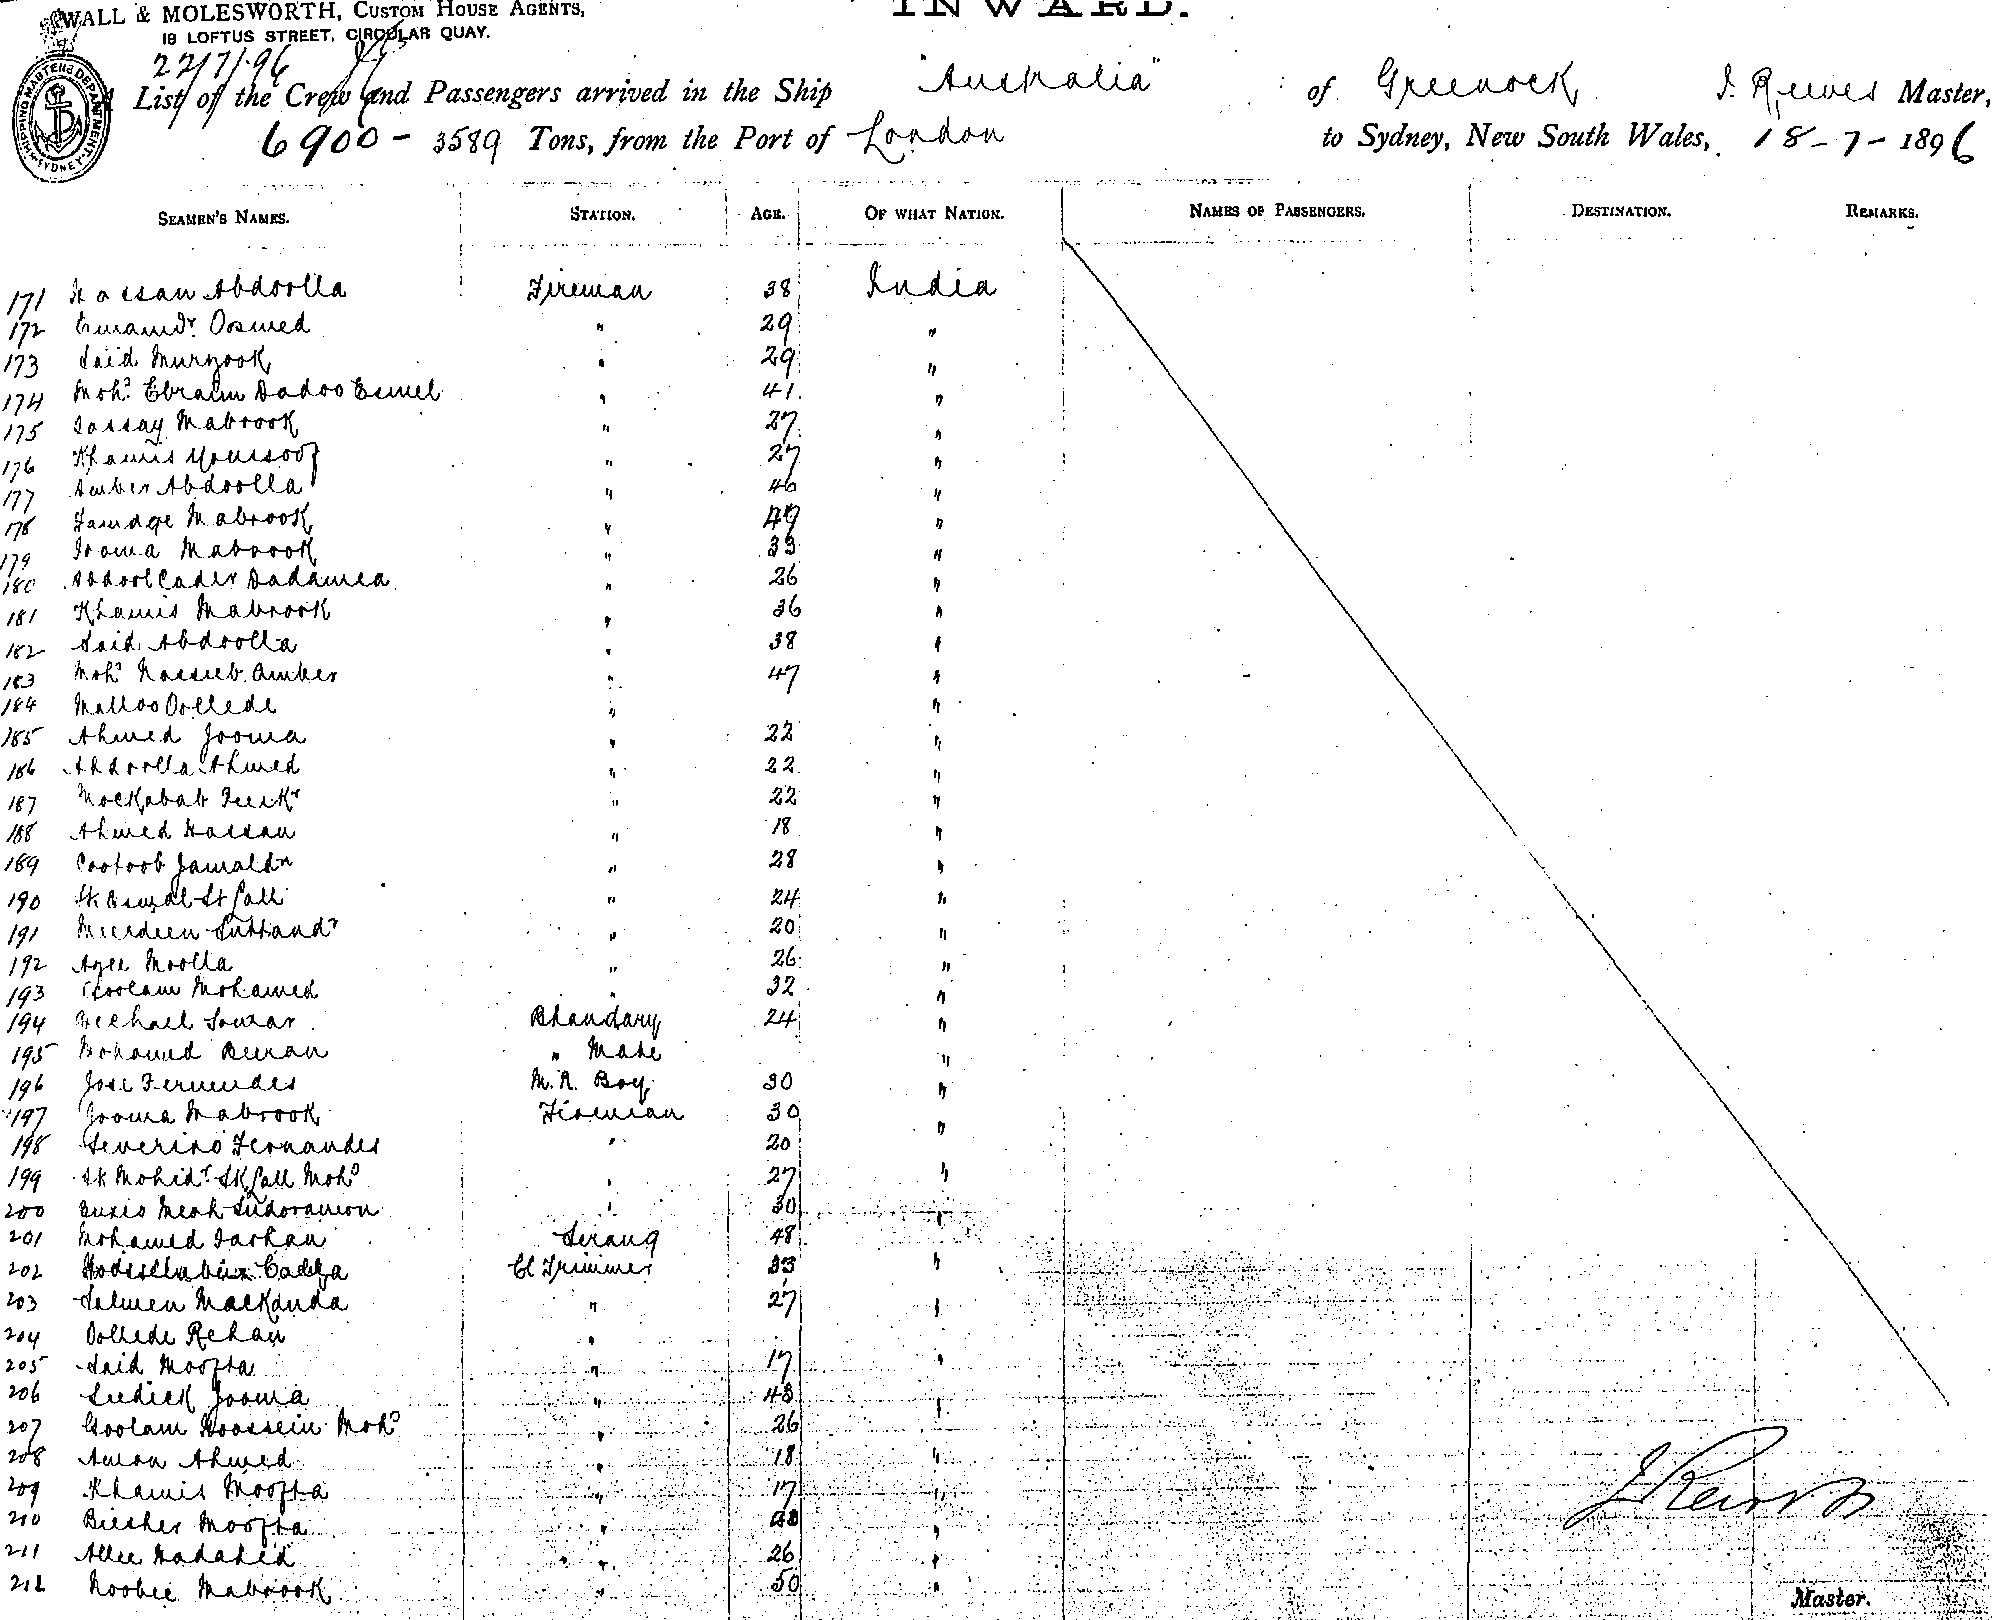 WALL & MOLESWORTH, CUSTOM HOUSE AGENTS,
18 LOFTUS STREET, CIRCULAR QUAY.
INWARD.
22/7/96
SHIPPING MASTER'S DEPARTMENT SYDNEY
List of the Crew and Passengers arrived in the Ship "Australia" of Greenock J. Reeves Master,
6900 - 3589 Tons, from the Port of London to Sydney, New South Wales, 18-7-1896
SEAMEN'S NAMES. STATION. AGE. OF WHAT NATION. NAMES OF PASSENGERS. DESTINATION. REMARKS.
171 Hassan Abdoolla Fireman 38 India
172 Emamdr. Oosmed " 29 "
173 Said Murzook " 29 "
174 Mohd. Ebraim Dadoo Esmel " 41. "
175 Mabrook " 27 "
176 Khamis Youssoof " 27 "
177 Amber Abdoolla " 46 "
178 Mabrook " 49 "
179 Jooma Mabrook " 33 "
180 Abdool Cader Dadamea " 26 "
181 Khamis Mabrook " 36 "
182 Said Abdoolla " 38 "
183 Mohd Nassieb Amber " 47 "
184 Malloo Oollede " "
185 Ahmed Jooma " 22 "
186 Abdoolla Ahmed " 22 "
187 " 22 "
188 Ahmed Hassan " 18 "
189 Cootoob Jamaldn " 28 "
190 Sk " 24 "
191 " 20 "
192 Moolla " 26 "
193 Goolam Mohamed " 32 "
194 Bhandary 24 "
195 Mohamed " Mate "
196 Jose Fernandes M.R. Boy 30 "
197 Jooma Mabrook Fireman 30 "
198 Severino Fernandes " 20 "
199 Sk Mohidr. Sk Mohd " 27 "
200 " 30 "
201 Mohamed Serang 48
202 Cl Trimmer 33 "
203 Selmen Mackanda " 27 "
204 Oollede Rehan "
205 Said Moofta " 17 "
206 Seedick Jooma " 48 "
207 Goolam Hoossein Mohd " 26 "
208 Ahmed " 18 "
209 Khamis Moofta " 17 "
210 Moofta " "
211 Allee " 26 "
212 Noobie Mabrook " 50 "
J Reeves
Master.